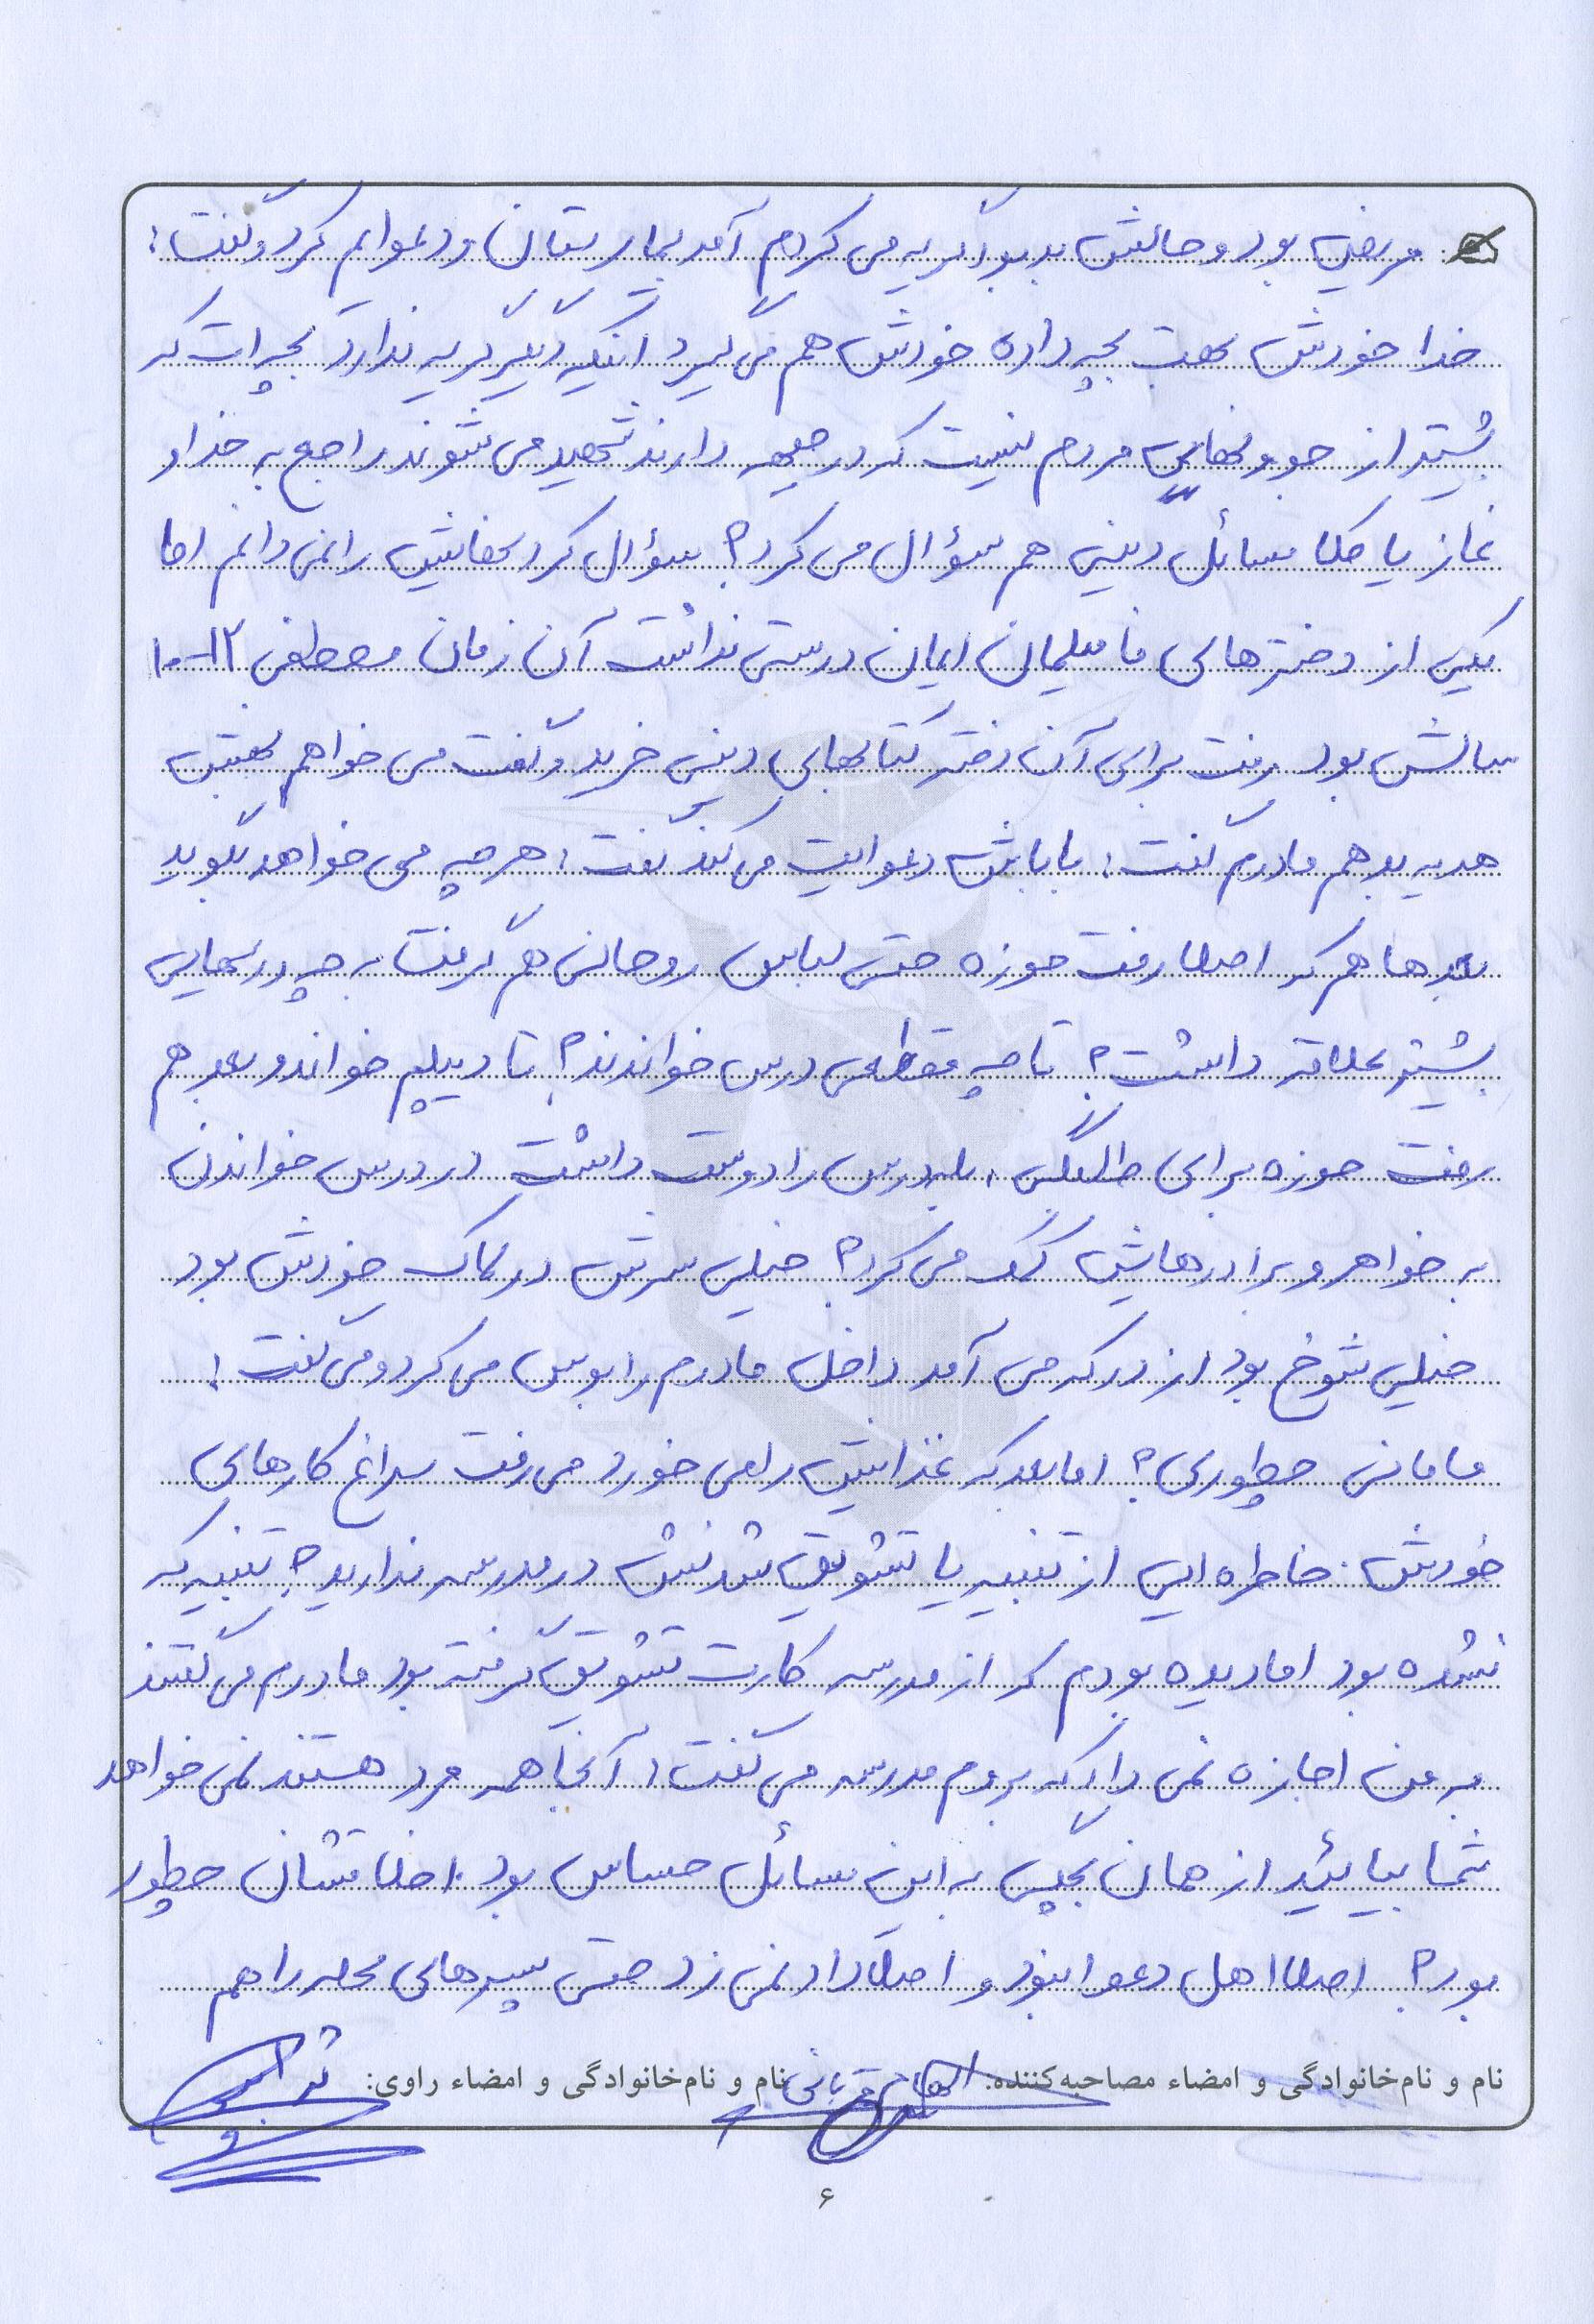 مریض بود و حالش بد بود گریه می کردم آمد بیمارستان و دعوایم کرد و گفت:
خدا خودش بهت بچه داده خودش هم می گیرد اینکه دیگر گریه ندارد بچه ات که
بیشتر از جوونهای مردم نیست که در جبهه دارند شهید می شوند. راجع به خدا و
نماز یا مثلا مسائل دینی هم سؤال می کرد؟ سؤال کردنهاش را نمی دانم اما
یکی از دخترهای فامیلمان ایمان درستی نداشت آن زمان مصطفی ۱۲-۱۰
سالش بود رفت برای آن دختر کتابهای دینی خرید و گفت می خواهم بهش
هدیه بدهم مادرم گفت: باباش دعوایت می کند گفت: هر چه می خواهد بگوید
بعدها هم که اصلا رفت حوزه حتی لباس روحانی هم گرفت. به چه درسهایی
بیشتر علاقه داشت؟ تا چه مقطعی درس خواندند؟ تا دیپلم خواند و بعد هم
رفت حوزه برای طلبگی، بله درس را دوست داشت در درس خواندن
به خواهر و برادرهایش کمک می کرد؟ خیلی سرش در لاک خودش بود
خیلی شوخ بود از در که می آمد داخل مادرم را بوس می کرد و می گفت:
مامانی چطوری؟ اما بعد که غذایش را می خورد می رفت سراغ کارهای
خودش. خاطره ایی از تنبیه یا تشویق شدنش در مدرسه ندارید؟ تنبیه که
نشده بود اما دیده بودم که از مدرسه کارت تشویق گرفته بود مادرم می گفتند
به من اجازه نمی داد که بروم مدرسه می گفت: آنجا همه مرد هستند نمی خواهد
شما بیائید از همان بچگی به این مسائل حساس بود. اخلاقشان چطور
بود؟ اصلا اهل دعوا نبود و اصلا داد نمی زد حتی پسرهای محله را هم
نام و نام‌خانوادگی و امضاء مصاحبه‌کننده: الهام قربانی نام و نام‌خانوادگی و امضاء راوی:
۶